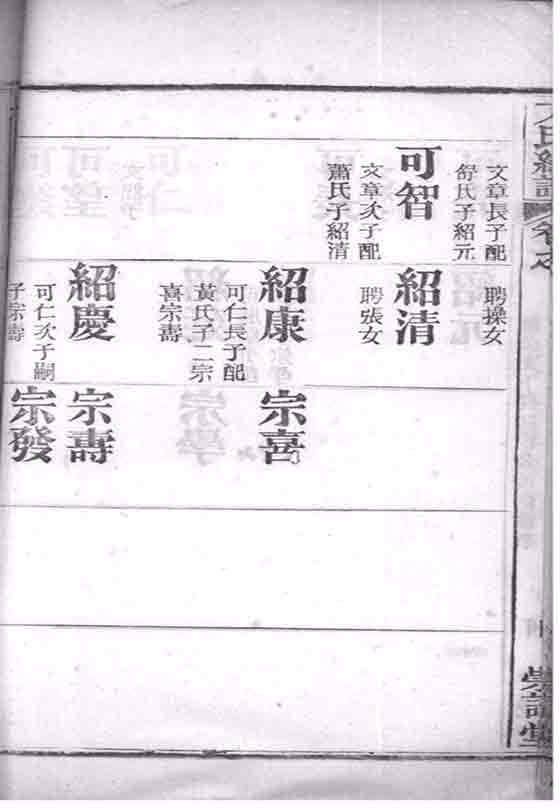 文章長子配
舒氏子紹元
可智
文章次子配
蕭氏子紹清
聘操女
紹清
聘張女
紹康
可仁長子配
黃氏子二宗
喜宗壽
紹慶
可仁次子嗣
子宗壽
宗喜
宗壽
宗發